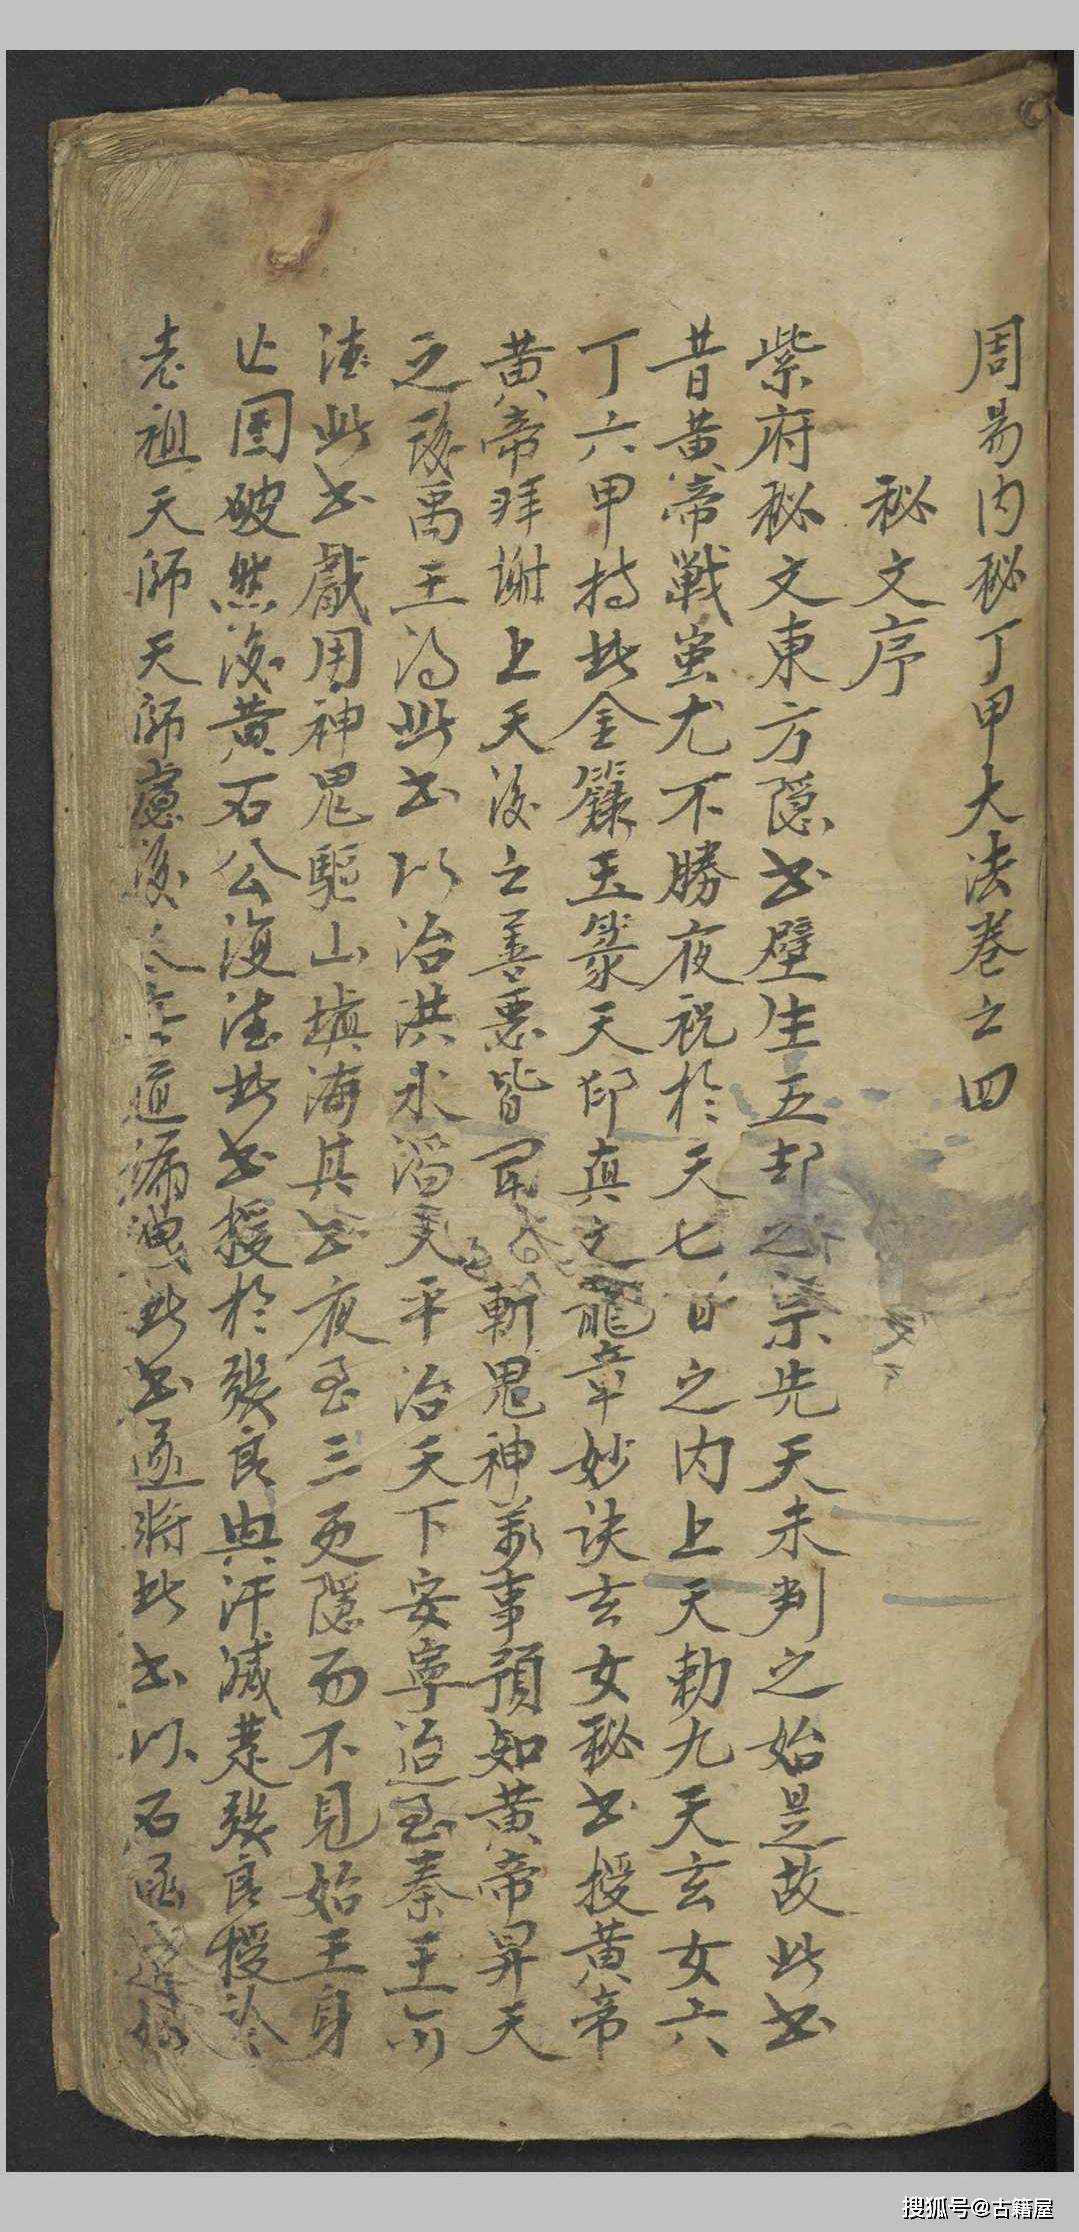 周易内秘丁甲大法卷之四
秘文序
紫府秘文東方隠书壁生五却之祭先天未判之始是故此书
昔黄帝戰蚩尤不勝夜祝於天七日之内上天勅九天玄女六
丁六甲持此金籙玉篆天印真文龍章妙诀玄女秘书授黄帝
黄帝拜謝上天後之善惡皆斬鬼神萬事預知黄帝昇天
之後禹王得此书以治洪水滔天平治天下安寧迨至秦王亦
得此书戲用神鬼驅山填海其书夜至三更隠而不見始王身
亡國破然後黄石公復得此书授於張良興汗滅楚張良授於
老祖天師天師慮後人道漏洩此书遂将此书以石函
搜狐号@古籍屋